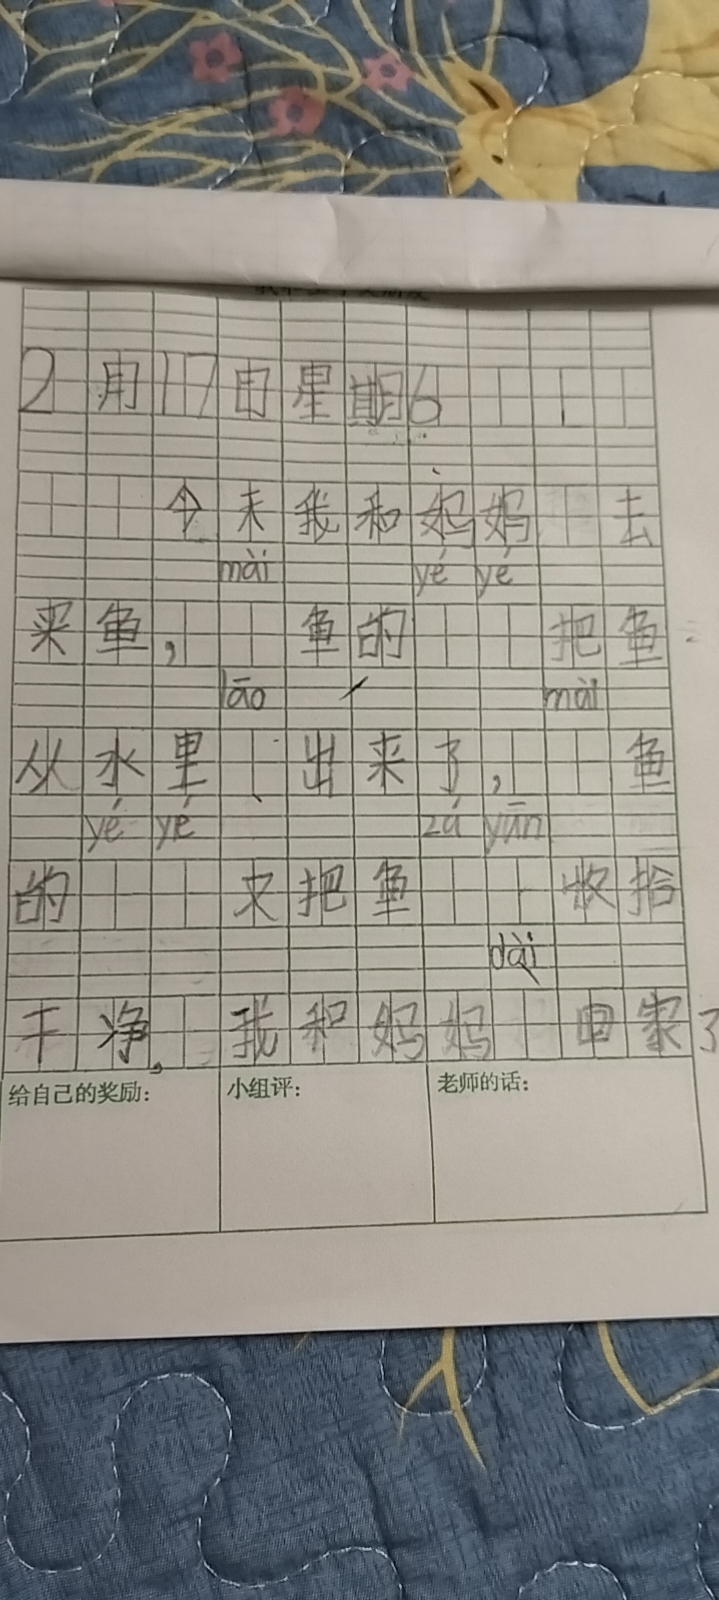 2月17日星期6
今未我和妈妈 去
mài yé yé
采鱼， 鱼的 把鱼
lāo mài
从水里 出来了， 鱼
yé yé zá yūn
的 又把鱼 收拾
dài
干净， 我和妈妈 回家了
给自己的奖励： 小组评： 老师的话：